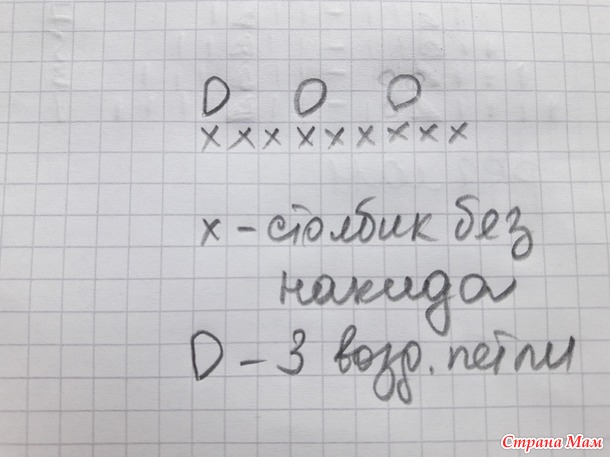 D O O
x x x x x x x x x
x - столбик без
накида
D - 3 возд. петли
Страна Мам